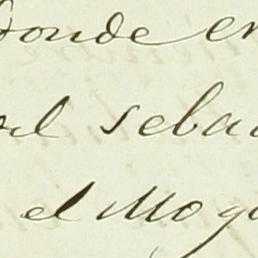 donde en
el seba
el Mog